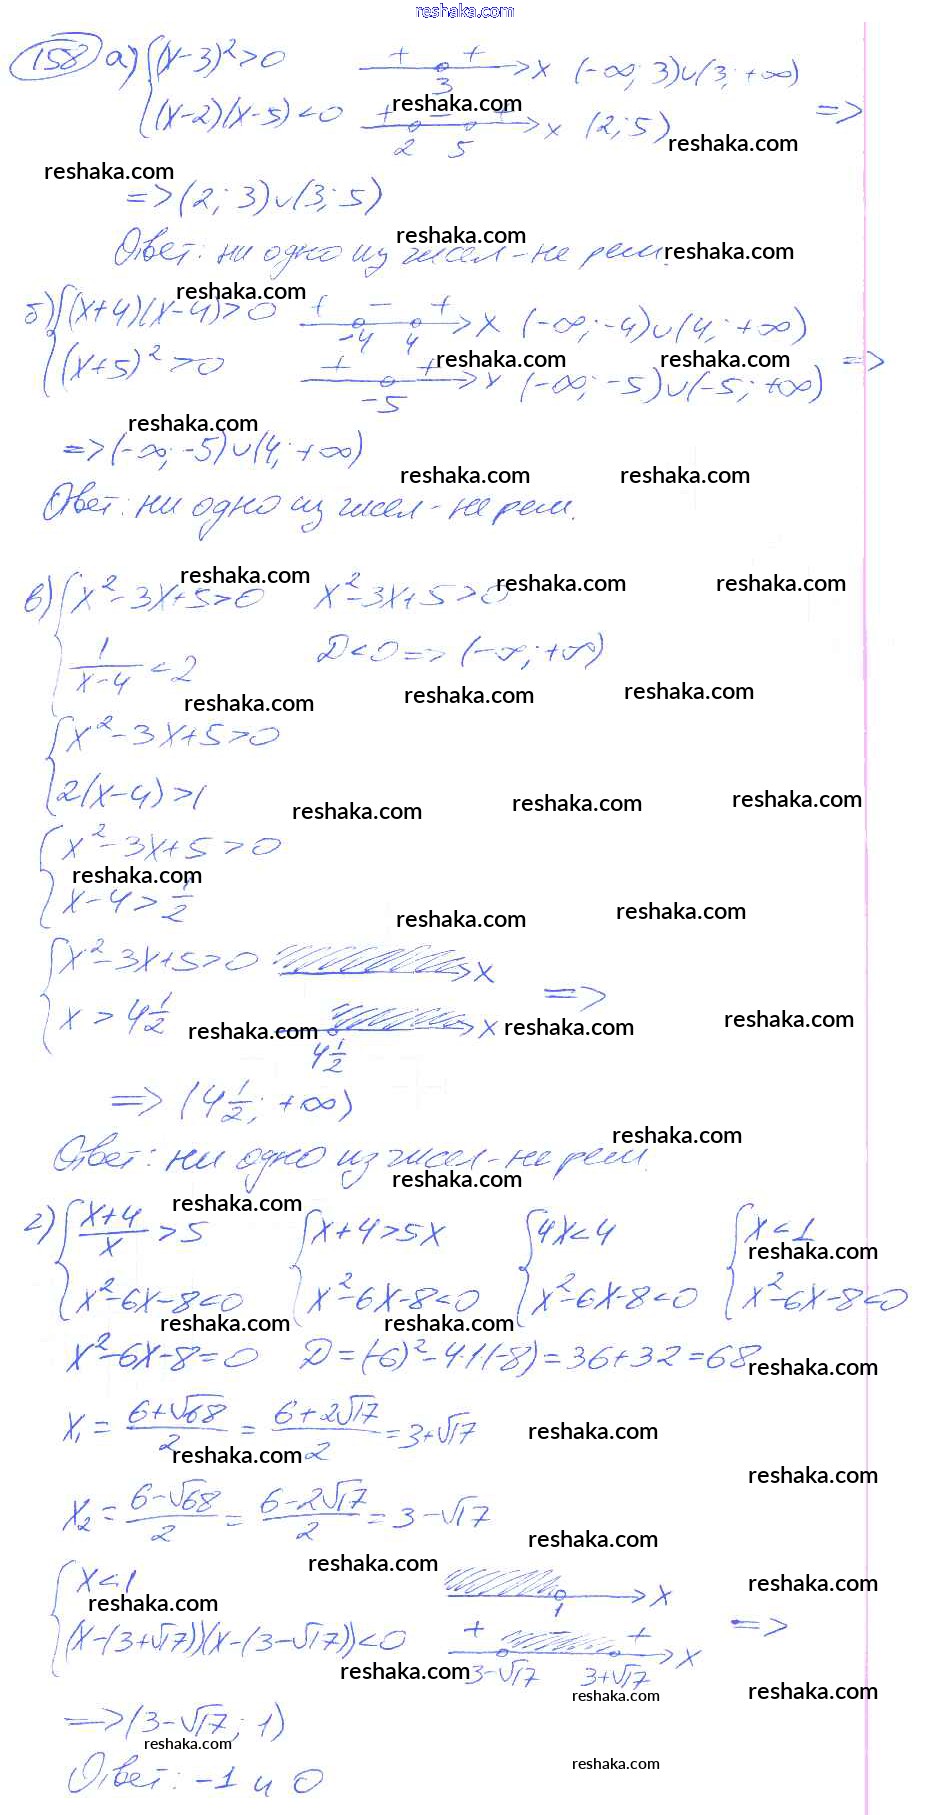 reshaka.com
158 а) {(x-3)²>0 + + 3 x (-∞; 3)∪(3; +∞)
reshaka.com
(x-2)(x-5)<0 + - + 2 5 x (2; 5) =>
reshaka.com
reshaka.com
=> (2; 3)∪(3; 5)
reshaka.com
Ответ: ни одно из чисел - не реш. reshaka.com
reshaka.com
б) {(x+4)(x-4)>0 + - + -4 4 x (-∞; -4)∪(4; +∞)
reshaka.com reshaka.com
(x+5)²>0 + + -5 x (-∞; -5)∪(-5; +∞) =>
reshaka.com
=> (-∞; -5)∪(4; +∞)
reshaka.com reshaka.com
Ответ: ни одно из чисел - не реш.
reshaka.com reshaka.com reshaka.com
в) {x²-3x+5>0 x²-3x+5>0
1/(x-4)<2 D<0 => (-∞; +∞)
reshaka.com reshaka.com reshaka.com
{x²-3x+5>0
2(x-4)>1
reshaka.com reshaka.com reshaka.com
{x²-3x+5>0
reshaka.com
x-4>1/2
reshaka.com reshaka.com
{x²-3x+5>0 x
x>4 1/2 4 1/2 x =>
reshaka.com reshaka.com reshaka.com
=> (4 1/2; +∞)
reshaka.com
Ответ: ни одно из чисел - не реш.
reshaka.com
reshaka.com
г) {(x+4)/x>5 {x+4>5x {4x<4 {x<1
reshaka.com
x²-6x-8<0 x²-6x-8<0 x²-6x-8<0 x²-6x-8<0
reshaka.com reshaka.com
x²-6x-8=0 D=(-6)²-4·1(-8)=36+32=68
reshaka.com
x₁=(6+√68)/2=(6+2√17)/2=3+√17
reshaka.com
reshaka.com reshaka.com
x₂=(6-√68)/2=(6-2√17)/2=3-√17
reshaka.com
reshaka.com
{x<1 1 x
reshaka.com reshaka.com
(x-(3+√17))(x-(3-√17))<0 + - + 3-√17 3+√17 x =>
reshaka.com
reshaka.com reshaka.com
=> (3-√17; 1)
reshaka.com
reshaka.com
Ответ: -1 и 0